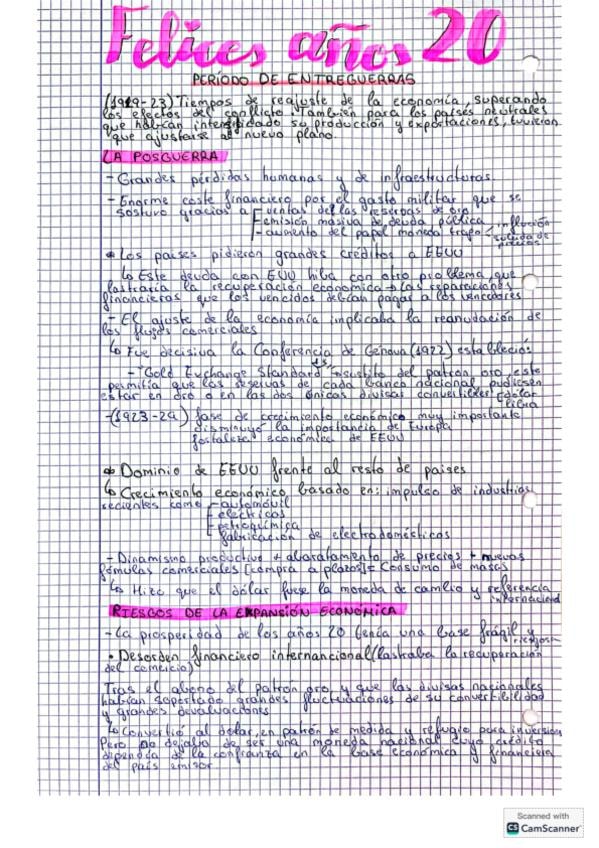 Felices años 20
PERÍODO DE ENTREGUERRAS
(1919-23) Tiempos de reajuste de la economía, superando
los efectos del conflicto. También para los países neutrales
que habían intensificado su producción y exportaciones, tuvieron
que ajustarse al nuevo plano.
LA POSGUERRA
- Grandes pérdidas humanas y de infraestructuras.
- Enorme coste financiero por el gasto militar que se
sostuvo gracias a - ventas de las reservas de oro
- emisión masiva de deuda pública
- aumento del papel moneda trajo - inflación
subida de precios
Los países pidieron grandes créditos a EEUU
Este deuda con EUU hiba con otro problema, que
lastraría la recuperación económica → las reparaciones
financieras que los vencidos debían pagar a los vencedores
- El ajuste de la economía implicaba la reanudación de
los flujos comerciales
Fue decisiva la Conferencia de Génova (1922) estableció:
- "Gold Exchange Standard" → sustit. del patrón oro, este
permitía que las reservas de cada banco nacional pudiesen
estar en oro o en las dos únicas divisas convertibles dólar
libra
- (1923-29) fase de crecimiento económico muy importante
disminuyó la importancia de Europa
fortaleza económica de EEUU
Dominio de EEUU frente al resto de países
Crecimiento económico basado en: impulso de industrias
recientes como - automóvil
- eléctricas
- petroquímica
- fabricación de electrodomésticos
- Dinamismo productivo + abaratamiento de precios + nuevas
fórmulas comerciales [compra a plazos] = Consumo de masas
Hizo que el dólar fuese la moneda de cambio y referencia
internacional
RIESGOS DE LA EXPANSIÓN ECONÓMICA
- La prosperidad de los años 20 tenía una base frágil y
riesgosa
• Desorden financiero internancional (lastraba la recuperación
del comercio)
Tras el abono del patrón oro, y que las divisas nacionales
habían soportado grandes fluctuaciones de su convertibilidad
y grandes devaluaciones
Convertió al dólar, en patrón de medida y refugio para inversión
Pero no dejaba de ser una moneda nacional cuyo crédito
dependía de la confianza en la base económica y financiera
del país emisor
Scanned with
CS CamScanner